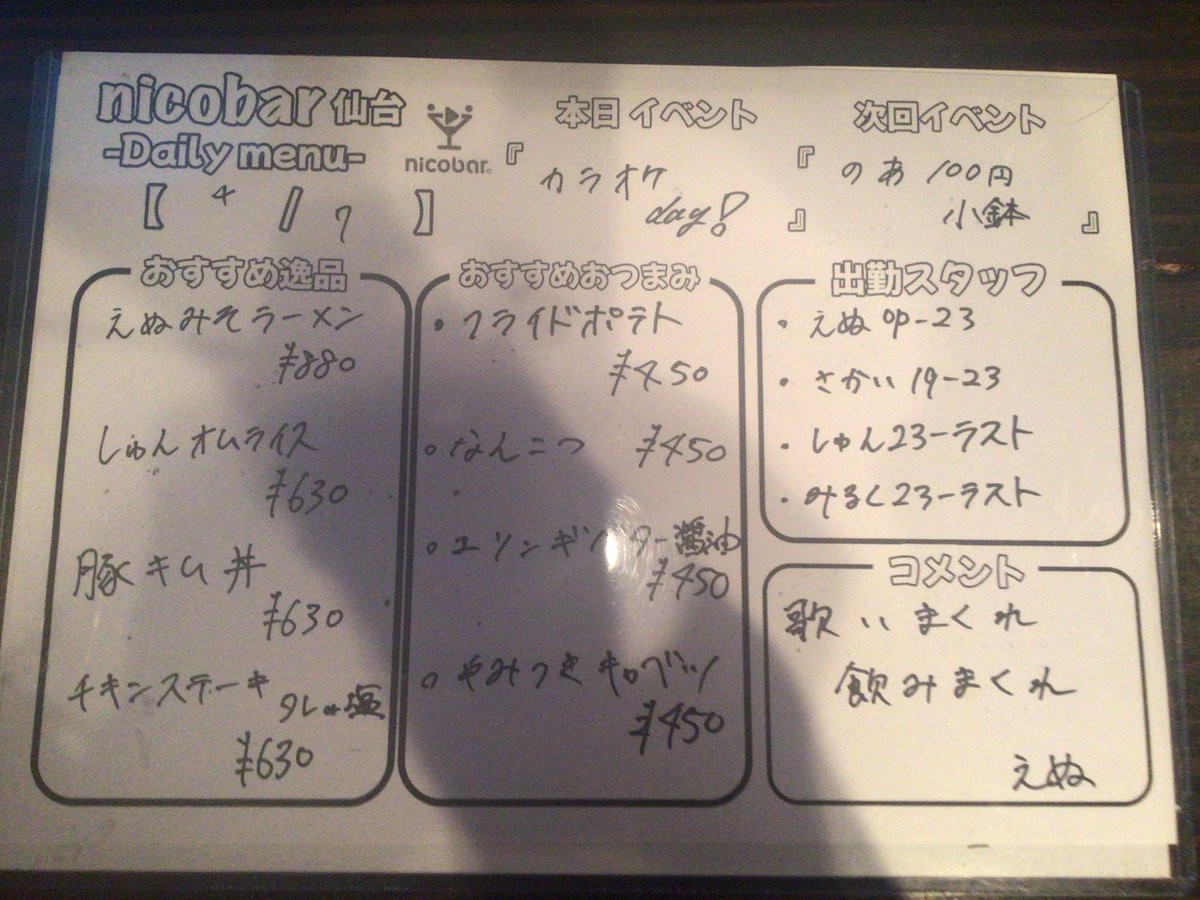 nicobar 仙台
-Daily menu-
【 4 / 7 】
nicobar
本日イベント
『カラオケ
day! 』
次回イベント
『のあ 100円
小鉢 』
おすすめ逸品
えぬみそラーメン
¥880
しゅんオムライス
¥630
豚キム丼
¥630
チキンステーキ タレor塩
¥630
おすすめおつまみ
・フライドポテト
¥450
・なんこつ ¥450
・エリンギバター醤油
¥450
・やみつきキャベツ
¥450
出勤スタッフ
・えぬ op-23
・さかい 19-23
・しゅん23-ラスト
・みるく23-ラスト
コメント
歌いまくれ
飲みまくれ
えぬ